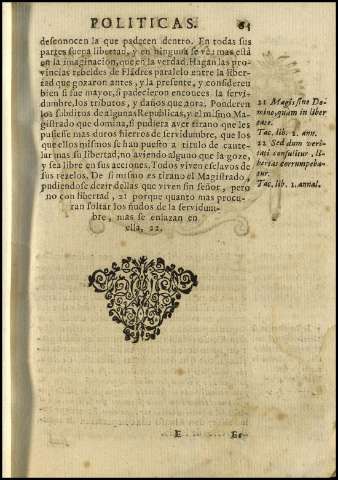 POLITICAS. 61
desconocen la que padecen dentro. En todas sus
partes suena libertad, y en ninguna se vè, mas està
en la imaginacion, que en la verdad. Hagan las pro-
vincias rebeldes de Flãdres paralelo entre la liber-
tad que gozaron antes, y la presente, y consideren
bien si fue mayor, si padecieron entonces la servi-
dumbre, los tributos, y daños que aora. Ponderen
los subditos de algunas Republicas, y el mismo Ma-
gistrado que domina, si pudiera aver tirano que les
pusiesse mas duros hierros de servidumbre, que los
que ellos mismos se han puesto a titulo de caute-
lar mas su libertad, no aviendo alguno que la goze,
y sea libre en sus acciones. Todos viven esclavos de
sus rezelos. De si mismo es tirano el Magistrado,
pudiendose dezir dellas que viven sin señor, pero
no con libertad, 21 porque quanto mas procu-
ran soltar los nudos de la servidum-
bre, mas se enlazan en
ella, 22.
21 Magis sine Do-
mino, quam in liber
tate.
Tac. lib. 2. ann.
22 Sed dum veri-
tati consulitur, li-
bertas corrumpeba-
tur.
Tac. lib. 1. annal.
E